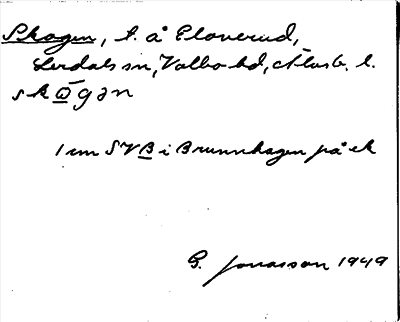 Skogen, t. å Eloverud,
Lerdals sn, Valbo hd, Älvsb. l.
skω̄gən
1 m SVB i Brunnhagen på ek
G. Jonasson 1949